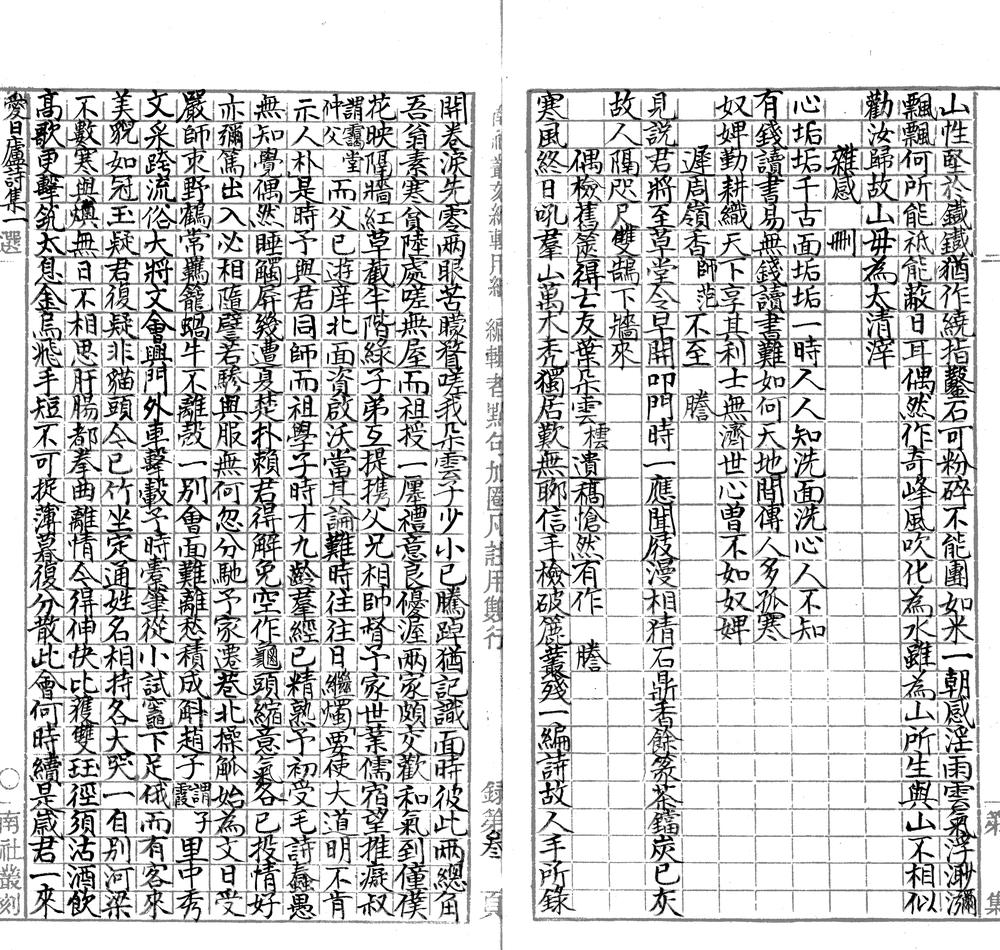 二
第
集
山性堅於鐵鐵猶作繞指鑿石可粉碎不能團如米一朝感淫雨雲氣浮渺瀰
飄飄何所能祇能蔽日耳偶然作奇峰風吹化為水雖為山所生與山不相似
勸汝歸故山毋為太清滓
雜感 刪
心垢垢千古面垢垢一時人人知洗面洗心人不知
有錢讀書易無錢讀書難如何天地間傳人多孤寒
奴婢勤耕織天下享其利士無濟世心曾不如奴婢
遲周嶺香師范不至 謄
見說君將至草堂今早開叩門時一應聞屐漫相猜石鼎香餘篆茶鐺炭已灰
故人隔咫尺雙鵲下牆來
偶檢舊篋得亡友葉朵雲樰遺稿愴然有作 謄
寒風終日吼羣山萬木禿獨居歎無聊信手檢破簏叢殘一編詩故人手所錄
南社叢刻編輯用紙 編輯者點句加圈凡註用雙行 錄第叁頁
開卷淚先零兩眼苦矇瞀嗟我朵雲子少小已騰踔猶記識面時彼此兩總角
吾翁素寒貧陸處嗟無屋而祖授一廛禮意良優渥兩家頗交歡和氣到僮僕
花映隔牆紅草截半階綠子弟互提携父兄相師督予家世業儒宿望推癡叔
仲父謂靄堂而父已遊庠北面資啟沃當其論難時往往日繼燭要使大道明不肯
示人朴是時予與君同師而祖學子時才九齡羣經已精熟予初受毛詩蠢愚
無知覺偶然睡觸屏幾遭夏楚扑賴君得解免空作龜頭縮意氣各已投情好
亦彌篤出入必相隨譬若驂與服無何忽分馳予家遷巷北操觚始為文日受
嚴師朿野鶴常羈籠蝸牛不離殼一別會面難離愁積成斛趙子謂子霞里中秀
文采跨流俗大將文會興門外車擊轂予時橐筆從小試竈下足俄而有客來
美貌如冠玉疑君復疑非貓頭今已竹坐定通姓名相持各大哭一自別河梁
不數寒與燠無日不相思肝腸都拳曲離情今得伸快比獲雙玨徑須沽酒飲
高歌更擊筑太息金烏飛手短不可捉薄暮復分散此會何時續是歲君一來
愛日廬詩集一選 〇南社叢刻